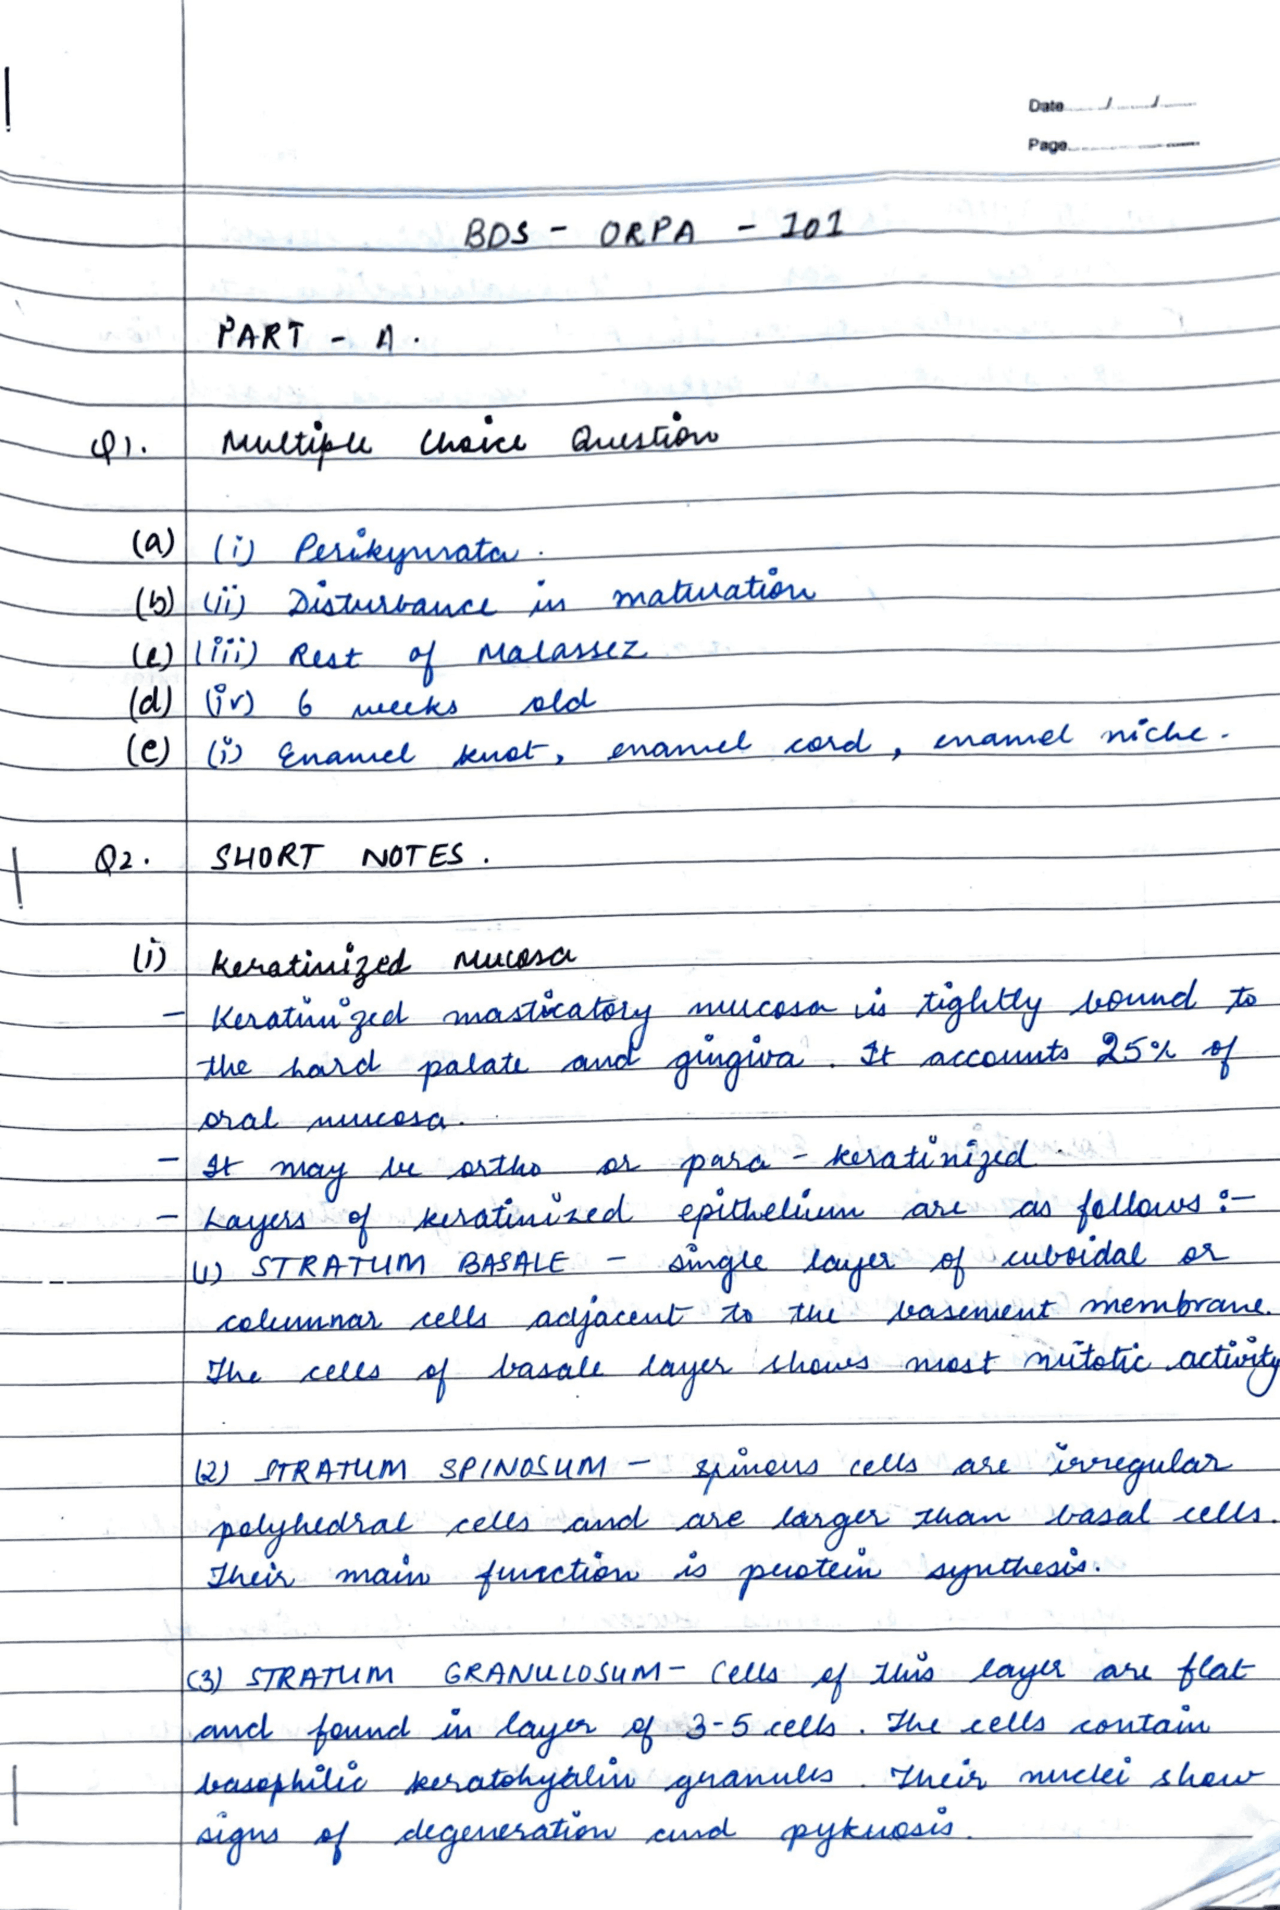 Date ..../..../....
Page................
BDS - ORPA - 101
PART - A.
Q1. Multiple Choice Question
(a) (i) Perikymata.
(b) (ii) Disturbance in maturation
(c) (iii) Rest of Malassez
(d) (iv) 6 weeks old
(e) (i) Enamel knot, enamel cord, enamel niche.
Q2. SHORT NOTES.
(i) Keratinized Mucosa
- Keratinized masticatory mucosa is tightly bound to
the hard palate and gingiva. It accounts 25% of
oral mucosa.
- It may be ortho or para - keratinized.
- Layers of keratinized epithelium are as follows :-
(1) STRATUM BASALE - single layer of cuboidal or
columnar cells adjacent to the basement membrane.
The cells of basale layer shows most mitotic activity
(2) STRATUM SPINOSUM - spinous cells are irregular
polyhedral cells and are larger than basal cells.
Their main function is protein synthesis.
(3) STRATUM GRANULOSUM - Cells of this layer are flat
and found in layer of 3-5 cells. The cells contain
basophilic keratohyalin granules. Their nuclei show
signs of degeneration and pyknosis.